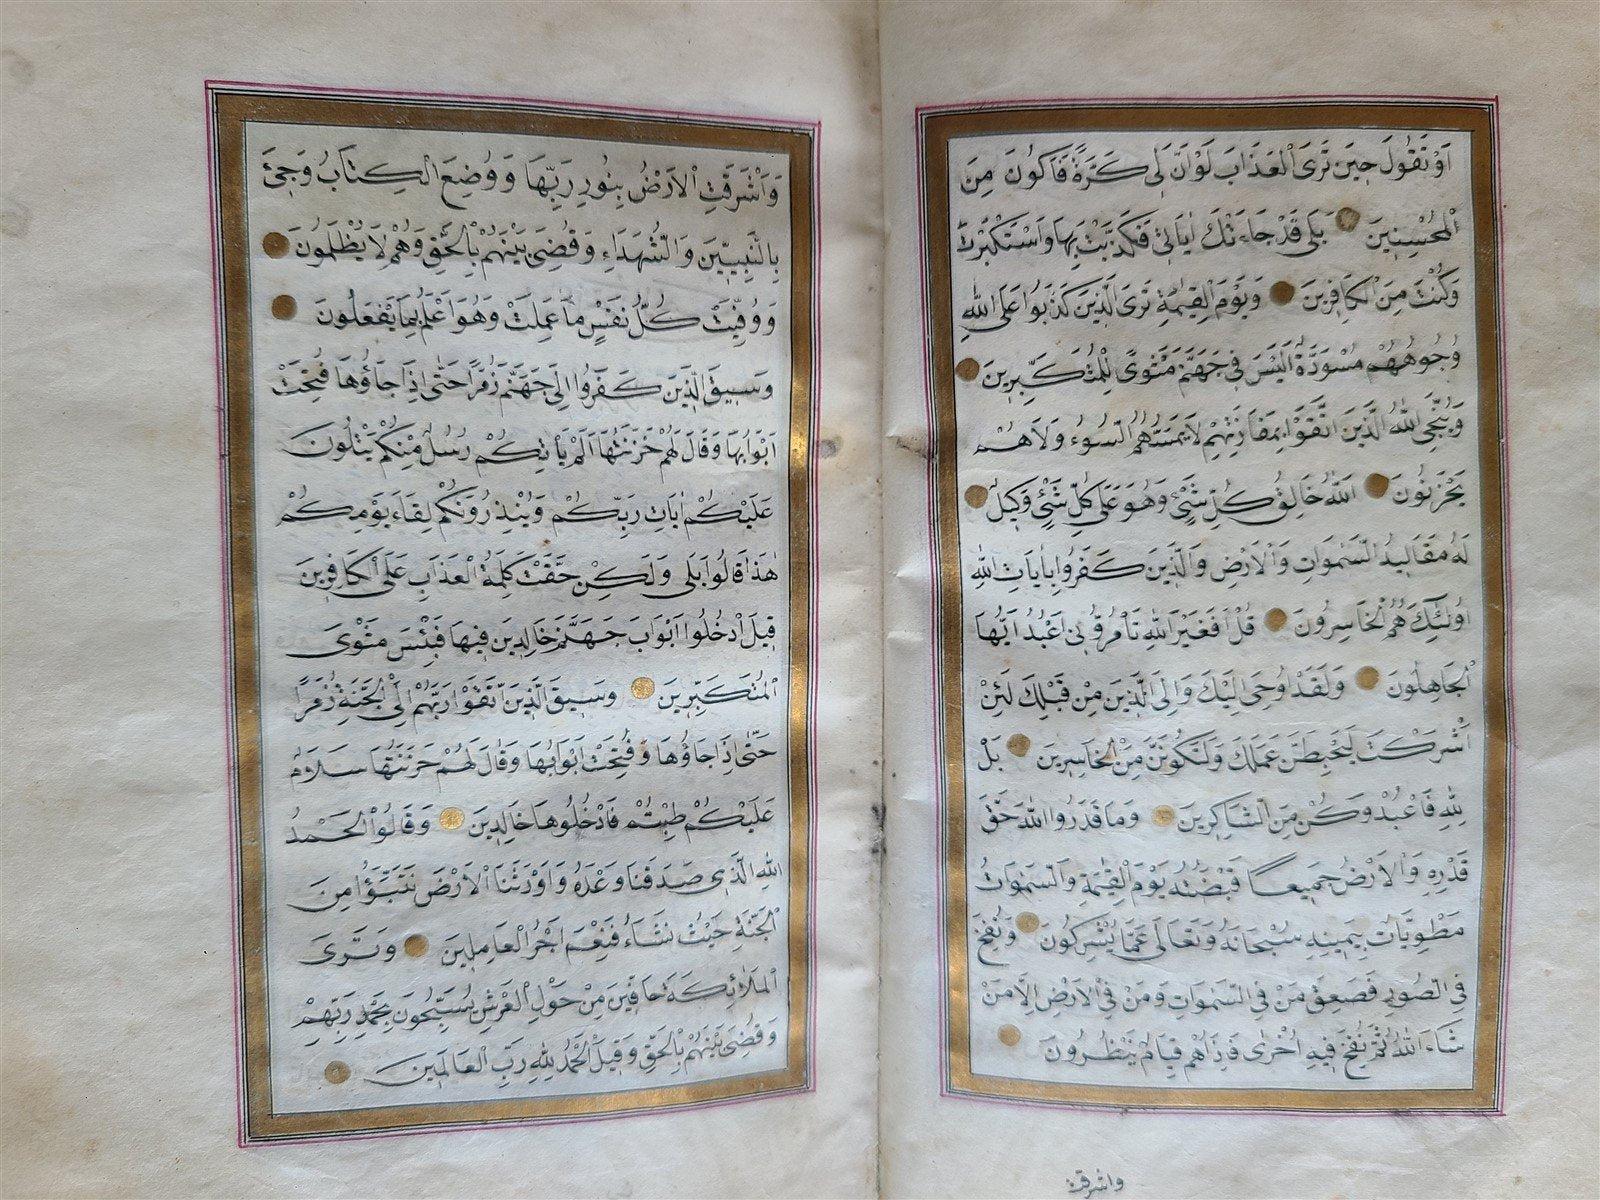 اَوْ تَقُولَ حِينَ تَرَى الْعَذَابَ لَوْ اَنَّ لِى كَرَّةً فَاَكُونَ مِنَ
الْمُحْسِنِينَ بَلٰى قَدْ جَاءَتْكَ اٰيَاتِى فَكَذَّبْتَ بِهَا وَاسْتَكْبَرْتَ
وَكُنْتَ مِنَ الْكَافِرِينَ وَيَوْمَ الْقِيٰمَةِ تَرَى الَّذِينَ كَذَبُوا عَلَى اللّٰهِ
وُجُوهُهُمْ مُسْوَدَّةٌ اَلَيْسَ فِى جَهَنَّمَ مَثْوًى لِلْمُتَكَبِّرِينَ
وَيُنَجِّى اللّٰهُ الَّذِينَ اتَّقَوْا بِمَفَازَتِهِمْ لَا يَمَسُّهُمُ السُّوءُ وَلَا هُمْ
يَحْزَنُونَ اَللّٰهُ خَالِقُ كُلِّ شَيْءٍ وَهُوَ عَلٰى كُلِّ شَيْءٍ وَكِيلٌ
لَهُ مَقَالِيدُ السَّمٰوَاتِ وَالْاَرْضِ وَالَّذِينَ كَفَرُوا بِاٰيَاتِ اللّٰهِ
اُولٰئِكَ هُمُ الْخَاسِرُونَ قُلْ اَفَغَيْرَ اللّٰهِ تَأْمُرُونِّى اَعْبُدُ اَيُّهَا
الْجَاهِلُونَ وَلَقَدْ اُوحِىَ اِلَيْكَ وَاِلَى الَّذِينَ مِنْ قَبْلِكَ لَئِنْ
اَشْرَكْتَ لَيَحْبَطَنَّ عَمَلُكَ وَلَتَكُونَنَّ مِنَ الْخَاسِرِينَ بَلِ
اللّٰهَ فَاعْبُدْ وَكُنْ مِنَ الشَّاكِرِينَ وَمَا قَدَرُوا اللّٰهَ حَقَّ
قَدْرِهِ وَالْاَرْضُ جَمِيعًا قَبْضَتُهُ يَوْمَ الْقِيٰمَةِ وَالسَّمٰوَاتُ
مَطْوِيَّاتٌ بِيَمِينِهِ سُبْحَانَهُ وَتَعَالٰى عَمَّا يُشْرِكُونَ وَنُفِخَ
فِى الصُّورِ فَصَعِقَ مَنْ فِى السَّمٰوَاتِ وَمَنْ فِى الْاَرْضِ اِلَّا مَنْ
شَاءَ اللّٰهُ ثُمَّ نُفِخَ فِيهِ اُخْرٰى فَاِذَا هُمْ قِيَامٌ يَنْظُرُونَ
واشرقت
وَاَشْرَقَتِ الْاَرْضُ بِنُورِ رَبِّهَا وَوُضِعَ الْكِتَابُ وَجِىءَ
بِالنَّبِيِّينَ وَالشُّهَدَاءِ وَقُضِىَ بَيْنَهُمْ بِالْحَقِّ وَهُمْ لَا يُظْلَمُونَ
وَوُفِّيَتْ كُلُّ نَفْسٍ مَا عَمِلَتْ وَهُوَ اَعْلَمُ بِمَا يَفْعَلُونَ
وَسِيقَ الَّذِينَ كَفَرُوا اِلٰى جَهَنَّمَ زُمَرًا حَتّٰى اِذَا جَاؤُهَا فُتِحَتْ
اَبْوَابُهَا وَقَالَ لَهُمْ خَزَنَتُهَا اَلَمْ يَأْتِكُمْ رُسُلٌ مِنْكُمْ يَتْلُونَ
عَلَيْكُمْ اٰيَاتِ رَبِّكُمْ وَيُنْذِرُونَكُمْ لِقَاءَ يَوْمِكُمْ
هٰذَا قَالُوا بَلٰى وَلٰكِنْ حَقَّتْ كَلِمَةُ الْعَذَابِ عَلَى الْكَافِرِينَ
قِيلَ ادْخُلُوا اَبْوَابَ جَهَنَّمَ خَالِدِينَ فِيهَا فَبِئْسَ مَثْوَى
الْمُتَكَبِّرِينَ وَسِيقَ الَّذِينَ اتَّقَوْا رَبَّهُمْ اِلَى الْجَنَّةِ زُمَرًا
حَتّٰى اِذَا جَاؤُهَا وَفُتِحَتْ اَبْوَابُهَا وَقَالَ لَهُمْ خَزَنَتُهَا سَلَامٌ
عَلَيْكُمْ طِبْتُمْ فَادْخُلُوهَا خَالِدِينَ وَقَالُوا الْحَمْدُ
لِلّٰهِ الَّذِى صَدَقَنَا وَعْدَهُ وَاَوْرَثَنَا الْاَرْضَ نَتَبَوَّاُ مِنَ
الْجَنَّةِ حَيْثُ نَشَاءُ فَنِعْمَ اَجْرُ الْعَامِلِينَ وَتَرَى
الْمَلٰئِكَةَ حَافِّينَ مِنْ حَوْلِ الْعَرْشِ يُسَبِّحُونَ بِحَمْدِ رَبِّهِمْ
وَقُضِىَ بَيْنَهُمْ بِالْحَقِّ وَقِيلَ الْحَمْدُ لِلّٰهِ رَبِّ الْعَالَمِينَ